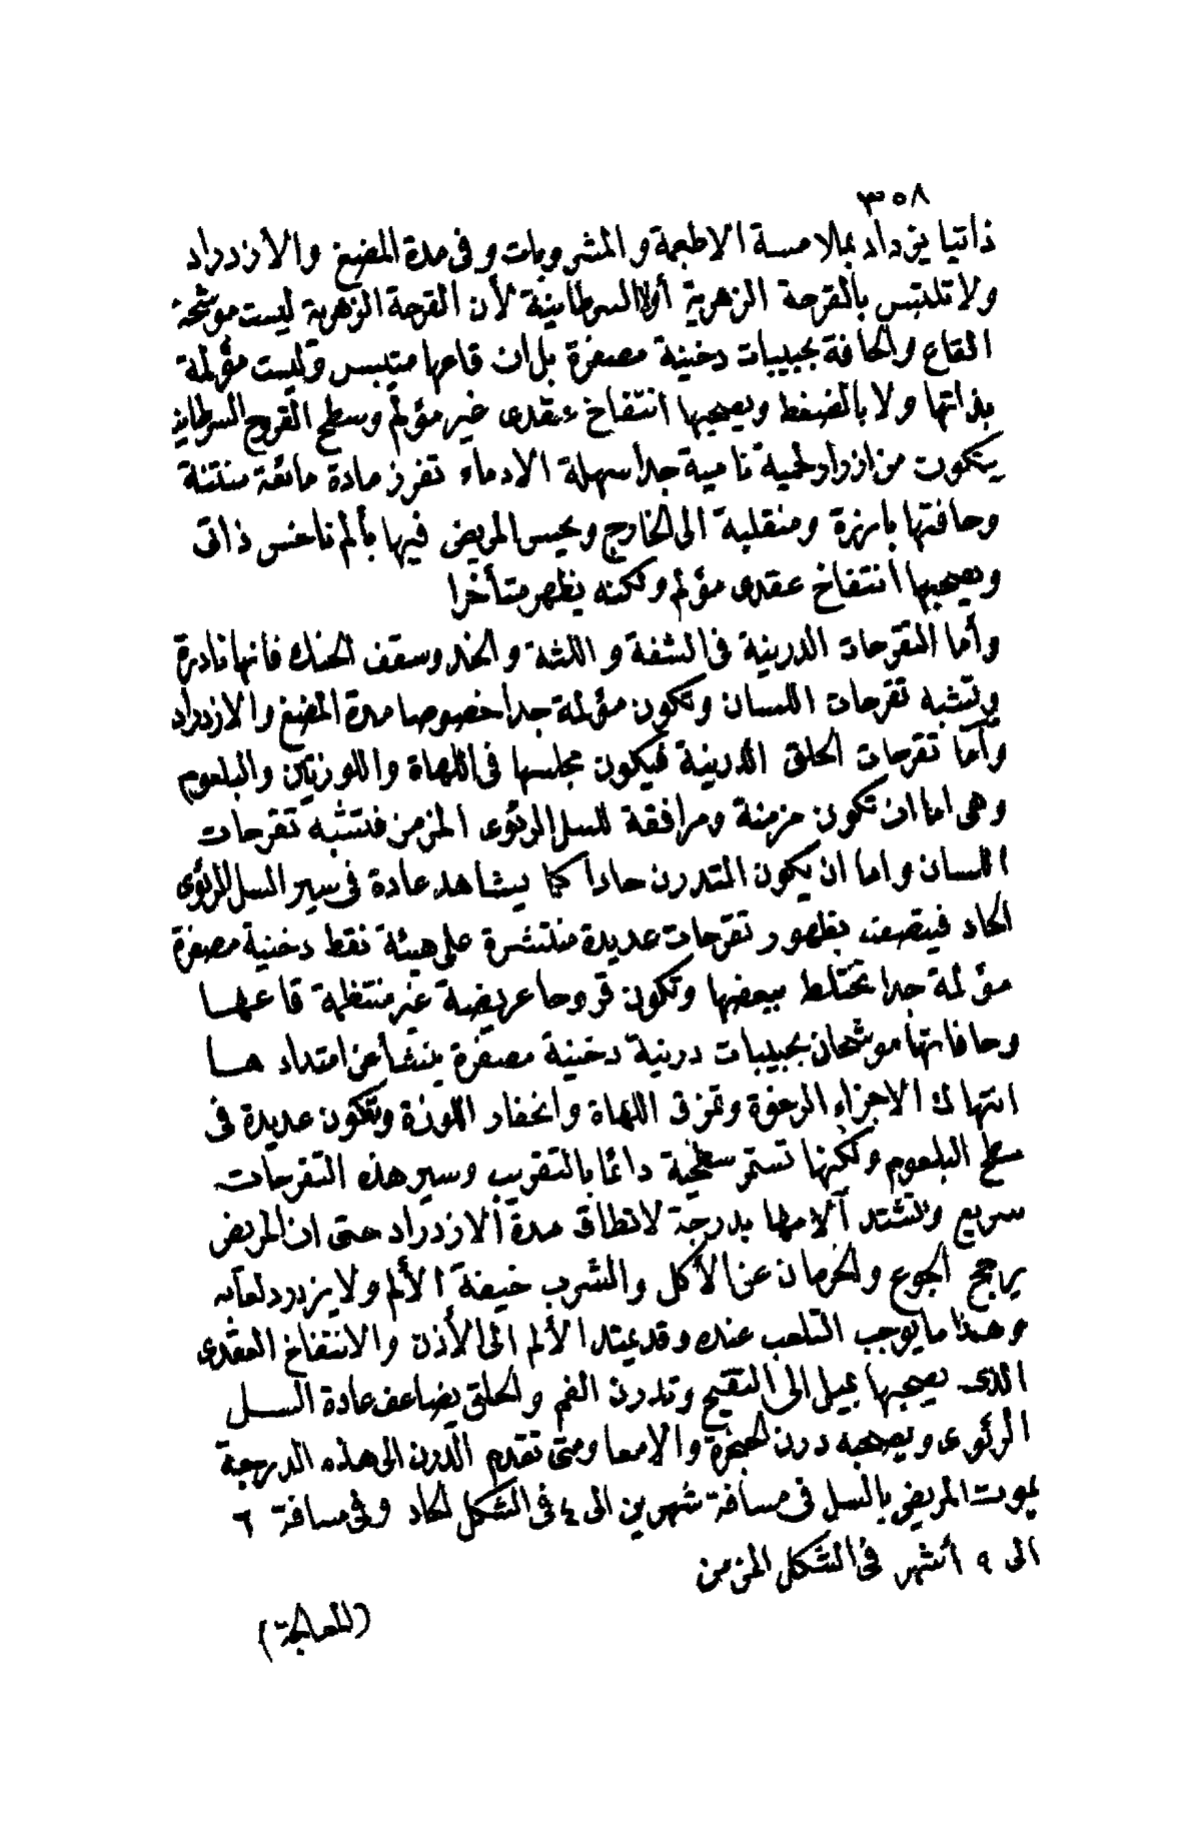 ٣٥٨
ذاتيا يزداد بملامسة الاطعمة والمشروبات وفى مدة المضغ والازدراد
ولا تلتبس بالقرحة الزهرية أولا السرطانية لأن القرحة الزهرية ليست موشحة
القاع والحافة بحبيبات دخنية مصفرة بل ان قاعها متيبس وليست مؤلمة
بذاتها ولا بالضغط ويصحبها انتفاخ عقدى غير مؤلم وسطح القروح السرطانية
يتكون من ازرار لحمية نامية جدا سهلة الادماء تفرز مادة مائعة منتنة
وحافتها بارزة ومنقلبة الى الخارج ويحس المريض فيها بألم ناخس ذاتى
ويصحبها أنتفاخ عقدى مؤلم ولكنه يظهر متأخرا
وأما التقرحات الدرنية فى الشفة واللثة والخد وسقف الحنك فأنها نادرة
وتشبه تقرحات اللسان وتكون مؤلمة جدا خصوصا مدة المضغ والازدراد
وأما تقرحات الحلق الدرينة فيكون مجلسها فى اللهاة واللوزتين والبلعوم
وهى اما ان تكون مزمنة ومرافقة للسل الرئوى المزمن فتشبه تقرحات
اللسان واما ان يكون التدرن حادا كما يشاهد عادة فى سير السل الرئوى
الحاد فيتصف بظهور تقرحات عديدة منتشرة على هيئة نقط دخنية مصفرة
مؤلمة جدا تختلط ببعضها وتكون قروحا عريضة غير منتظمة قاعها
وحافاتها موشحان بحبيبات درنية دخنية مصفرة ينشأ عن امتدادها
انتهاك الاجزاء الرخوة وتمزق اللهاة وانحفار اللوزة وتكون عديدة فى
سطح البلعوم ولكنها تستمر سطحية دائما بالتقريب وسير هذه التقرحات
سريع وتشتد آلامها بدرجة لاتطاق مدة ألازدراد حتى ان المريض
يرجح الجوع والحرمان عن الأكل والشرب خيفة الألم ولا يزدرد لعابه
وهذا ما يوجب التلعب عنده وقد يمتد الألم الى الأذن والانتفاخ العقدى
الذى يصحبها يميل الى التقيح وتدرن الفم والحلق يضاعف عادة السل
الرئوى ويصحبه درن الحنجرة والامعا ومتى تقدم الدرن الى هذه الدرجة
يموت المريض بالسل فى مسافة شهرين الى ٤ فى الشكل الحاد وفى مسافة ٦
الى ٩ أشهر فى الشكل المزمن
(المعالجة)